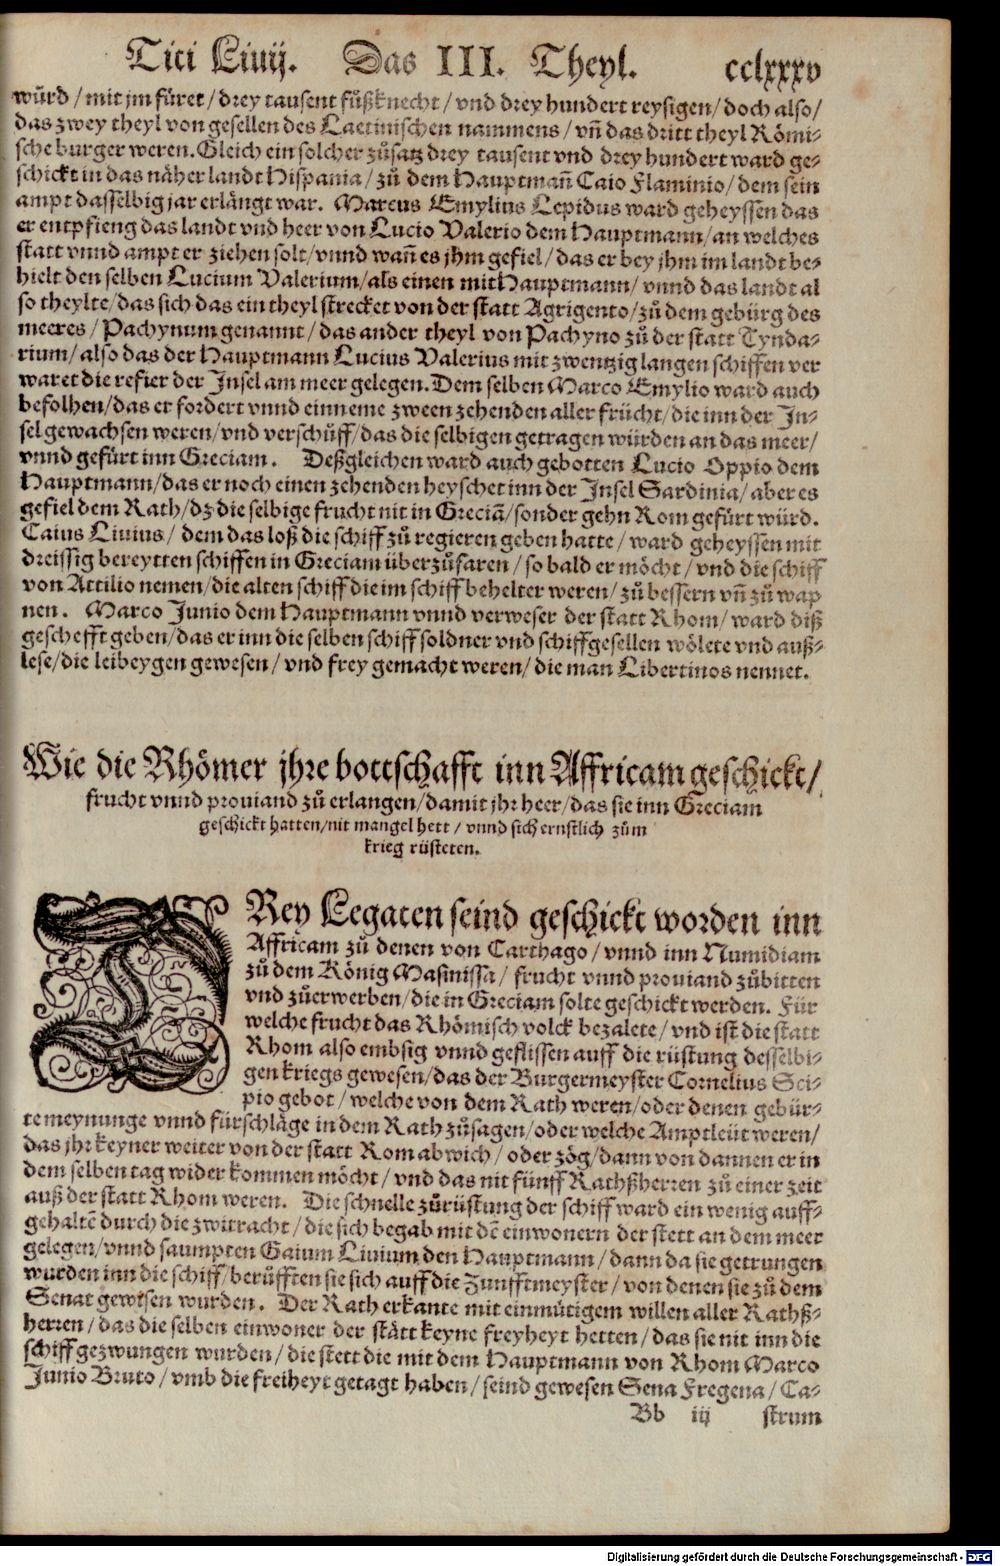 Titi Liuij. Das III. Theyl. cclxxxv
würd / mit jm füret / drey tausent fůßknecht / vnd drey hundert reysigen / doch also /
das zwey theyl von gesellen des Laetinischen nammens / vñ das dritt theyl Römi-
sche burger weren. Gleich ein solcher zůsatz drey tausent vnd drey hundert ward ge-
schickt in das näher landt Hispania / zů dem Hauptmañ Caio Flaminio / dem sein
ampt dasselbig jar erlängt war. Marcus Emylius Lepidus ward geheyssen das
er entpfieng das landt vnd heer von Lucio Valerio dem Hauptmann / an welches
statt vnnd ampt er ziehen solt / vnnd wañ es jhm gefiel / das er bey jhm im landt be-
hielt den selben Lucium Valerium / als einen mit Hauptmann / vnnd das landt al
so theylte / das sich das ein theyl strecket von der statt Agrigento / zů dem gebürg des
meeres / Pachynum genannt / das ander theyl von Pachyno zů der statt Tynda-
rium / also das der Hauptmann Lucius Valerius mit zwentzig langen schiffen ver
waret die refier der Insel am meer gelegen. Dem selben Marco Emylio ward auch
befolhen / das er fordert vnnd einneme zween zehenden aller frücht / die inn der In-
sel gewachsen weren / vnd verschůff / das die selbigen getragen würden an das meer /
vnnd gefürt inn Greciam. Deßgleichen ward auch gebotten Lucio Oppio dem
Hauptmann / das er noch einen zehenden heyschet inn der Insel Sardinia / aber es
gefiel dem Rath / dz die selbige frucht nit in Greciã / sonder gehn Rom gefürt würd.
Caius Liuius / dem das loß die schiff zů regieren geben hatte / ward geheyssen mit
dreissig bereytten schiffen in Greciam überzůfaren / so bald er möcht / vnd die schiff
von Attilio nemen / die alten schiff die im schiff behelter weren / zů bessern vñ zů wap
nen. Marco Junio dem Hauptmann vnnd verweser der statt Rhom / ward diß
geschefft geben / das er inn die selben schiff soldner vnd schiffgesellen wölete vnd auß-
lese / die leibeygen gewesen / vnd frey gemacht weren / die man Libertinos nennet.
Wie die Rhömer jhre bottschafft inn Affricam geschickt /
frucht vnnd prouiand zů erlangen / damit jhr heer / das sie inn Greciam
geschickt hatten / nit mangel hett / vnnd sich ernstlich zům
krieg rüsteten.
DRey Legaten seind geschickt worden inn
Affricam zů denen von Carthago / vnnd inn Numidiam
zů dem König Masinissa / frucht vnnd prouiand zůbitten
vnd zůerwerben / die in Greciam solte geschickt werden. Für
welche frucht das Rhömisch volck bezalete / vnd ist die statt
Rhom also embsig vnnd geflissen auff die rüstung desselbi-
gen kriegs gewesen / das der Burgermeyster Cornelius Sci-
pio gebot / welche von dem Rath weren / oder denen gebür-
te meynunge vnnd fürschläge in dem Rath zůsagen / oder welche Amptleüt weren /
das jhr keyner weiter von der statt Rom abwich / oder zög / dann von dannen er in
dem selben tag wider kommen möcht / vnd das nit fünff Rathßherren zů einer zeit
auß der statt Rhom weren. Die schnelle zůrüstung der schiff ward ein wenig auff-
gehaltē durch die zwitracht / die sich begab mit dē einwonern der stett an dem meer
gelegen / vnnd saumpten Gaium Liuium den Hauptmann / dann da sie getrungen
wurden inn die schiff / berůfften sie sich auff die Zunfftmeyster / von denen sie zů dem
Senat gewisen wurden. Der Rath erkante mit einmütigem willen aller Rathß-
herren / das die selben einwoner der stätt keyne freyheyt hetten / das sie nit inn die
schiff gezwungen wurden / die stett die mit dem Hauptmann von Rhom Marco
Junio Bruto / vmb die freiheyt getagt haben / seind gewesen Sena Fregena / Ca-
Bb iij strum
Digitalisierung gefördert durch die Deutsche Forschungsgemeinschaft - DFG